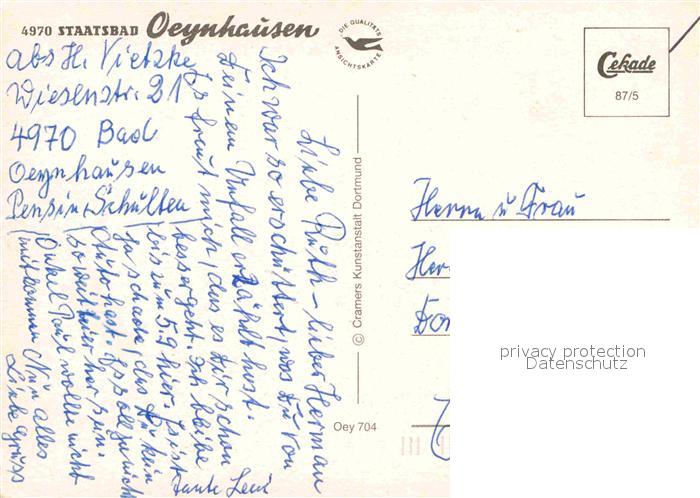 4970 STAATSBAD Oeynhausen
DIE QUALITÄTS
ANSICHTSKARTE
Cekade
87/5
Abs H. Vietzke
Wiesenstr. 21
4970 Bad
Oeynhausen
Pension Schulten
Liebe Ruth – lieber Herman
Ich war so erschüttert, was Du von
Deinem Unfall erzählt hast.
Es freut mich, das es Dir schon
besser geht. Ich bleibe
bis zum 5.9 hier. Es ist
ja schade, das Du kein
Auto hast. Es soll ja nicht
so weit hier her sein.
Onkel Paul wollte nicht
mitkommen Nun alles
Liebe Gruss
Tante Leni
© Cramers Kunstanstalt Dortmund
Oey 704
Herrn u Frau
Her
Dor
privacy protection
Datenschutz